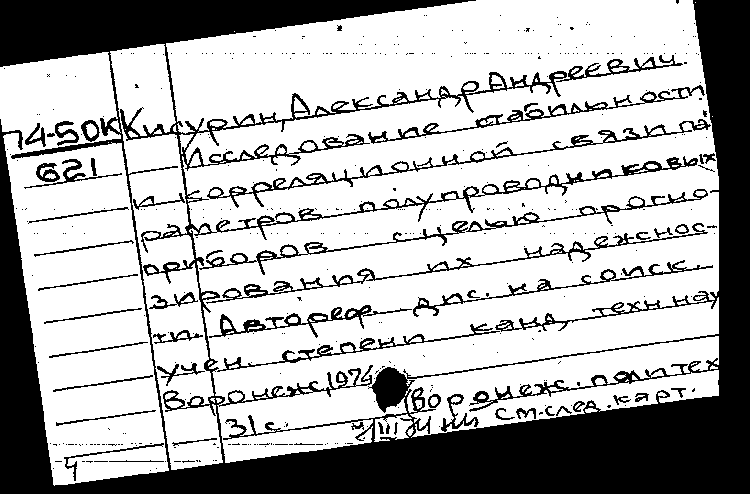 74-50К Кисурин, Александр Андреевич.
621 Исследование стабильности
и корреляционной связи па-
раметров полупроводниковых
приборов с целью прогно-
зирования их надежнос-
ти. Автореф. дис. на соиск.
учен. степени канд. техн. нау
Воронеж, 1974
(Воронеж. политех
31 с.
См. след. карт.
4